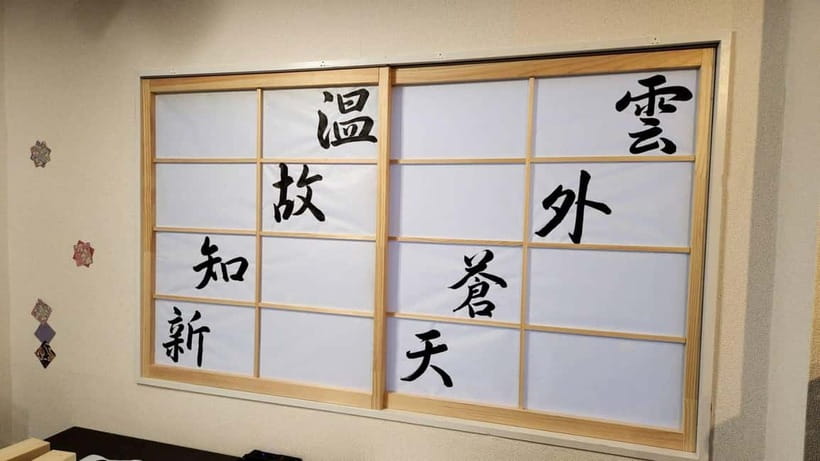 雲外蒼天
温故知新